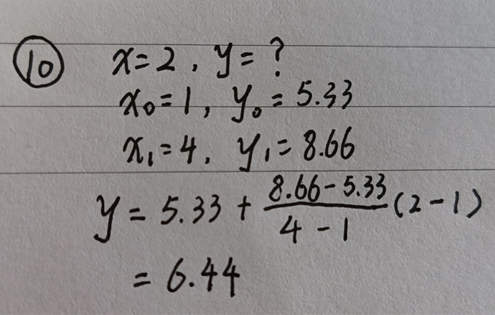 ⑩ x=2, y=?
x₀=1, y₀=5.33
x₁=4, y₁=8.66
y = 5.33 + \frac{8.66-5.33}{4-1}(2-1)
= 6.44